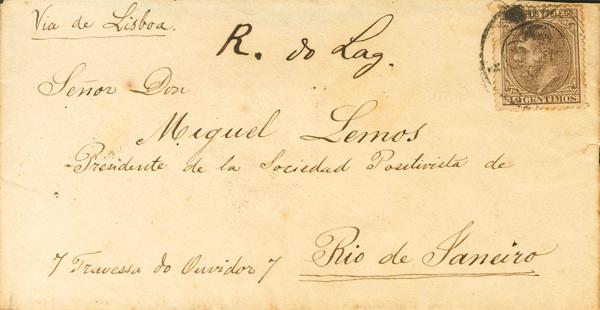 Via de Lisboa.
R. do Lag.
Señor Don
Miguel Lemos
Presidente de la Sociedad Positivista de
Rio de Janeiro
7 Travessa do Ouvidor 7
CENTIMOS